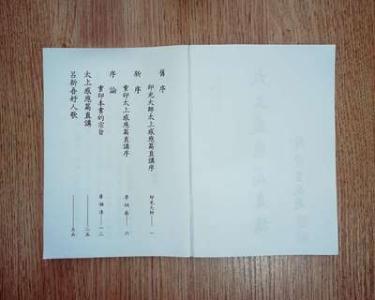 舊序
印光大師太上感應篇直講序 印光大師 一
新序
重印太上感應篇直講序 李炳南 六
序論
重印本書的宗旨 唐湘清 一二
太上感應篇直講
呂新吾好人歌